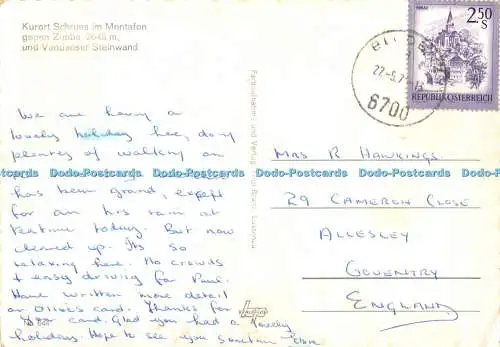 Kurort Schruns im Montafon
gegen Zimba, 2645 m,
und Vandanser Steinwand
2.50
S
REPUBLIK ÖSTERREICH
6700
We are having a
lovely holiday here, doing
plenty of walking on
has been grand, except
for an hrs rain at
teatime today. But now
cleared up. Its so
relaxing here. No crowds
& easy driving for Paul.
Have written more detail
on Olive's card. Thanks for
card. Glad you had a lovely
holiday. Hope to see you sometime
MRS R HAWKINGS.
29 CAMERON CLOSE
ALLESLEY
COVENTRY
ENGLAND
Dodo-Postcards Dodo-Postcards Dodo-Postcards Dodo-Postcards Dodo-Postcards